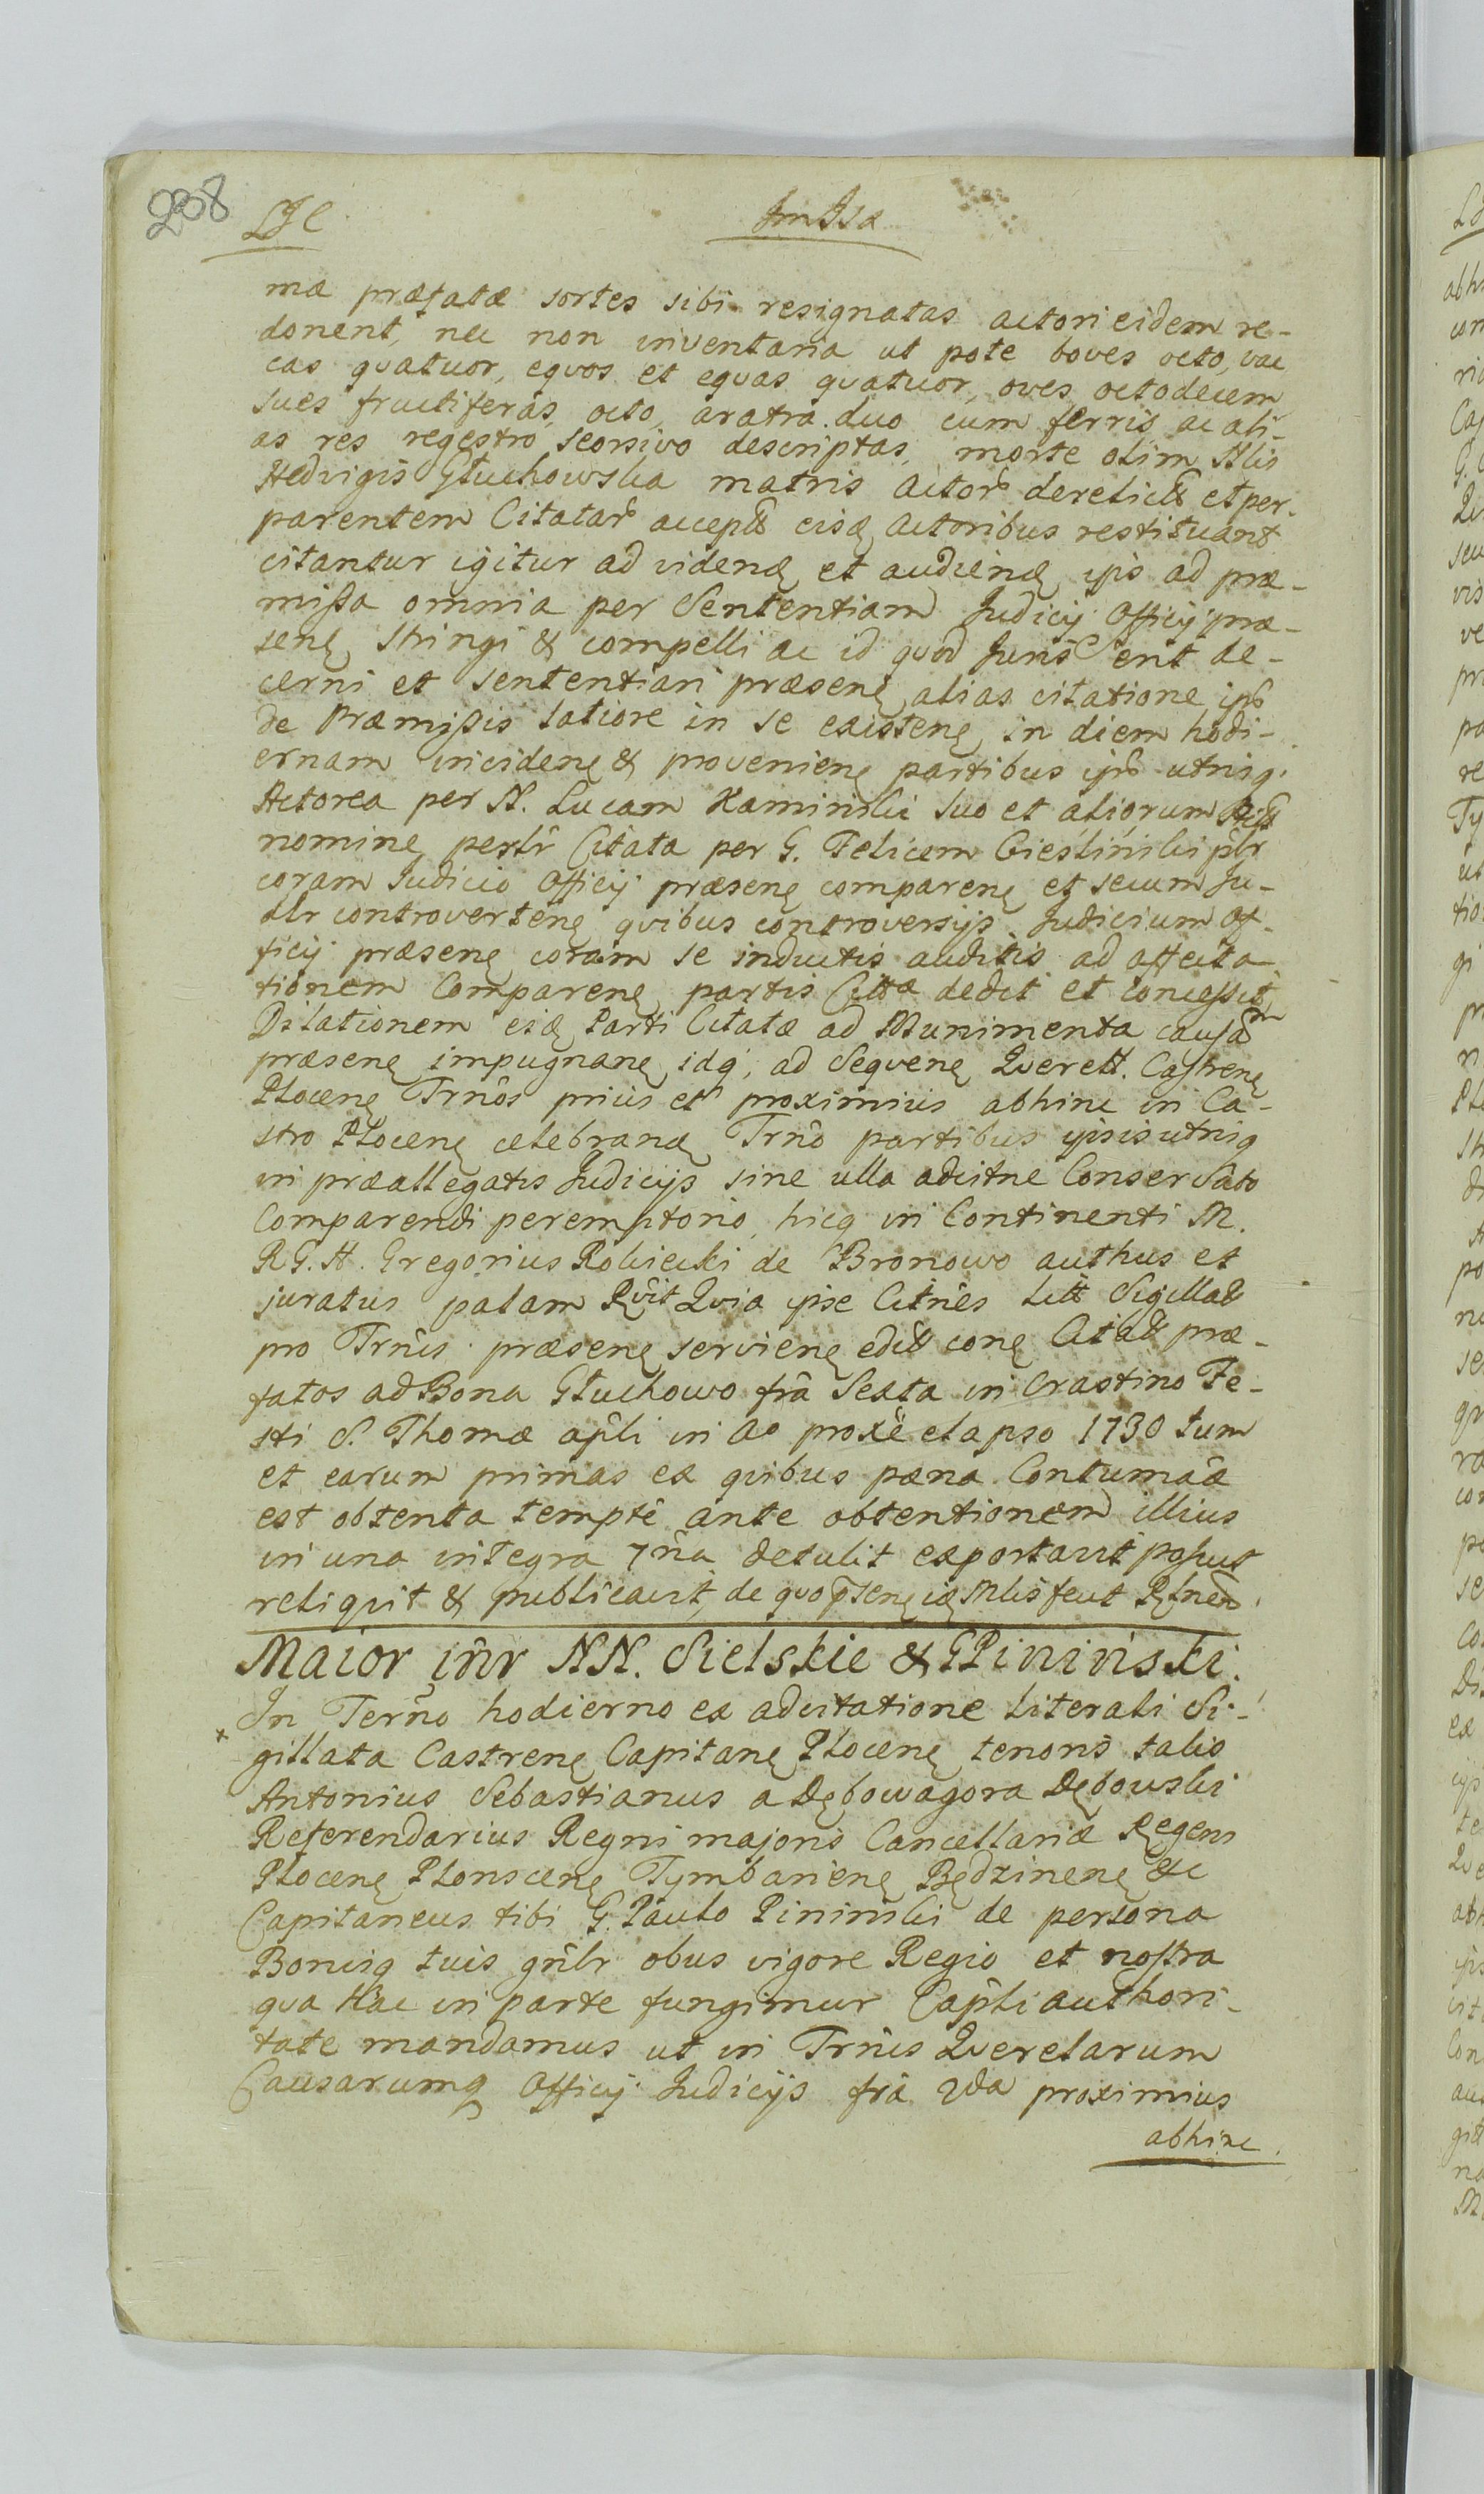 208
LJC
ma præfatæ sortes sibi resignatas actori eidem re-
donent, nec non inventaria ut pote boves octo, vac
cas qvatuor, eqvos et eqvas qvatuor, oves octodecem
sues fructiferas octo, aratra duo cum ferris ac ali-
as res regestro seorsivo descriptas, morte olim Nlis
Hedvigis Głuchowska matris Actor derelict et per
parentem Citatar accept eisq Actoribus restituant
citantur igitur ad videnq et audienq ips ad præ-
missa omnia per Sententiam Judicij Officij præ-
senę stringi & compelli ac id qvod Juris erit de-
cerni et sententiari præsenę alias citatione ips
de Præmissis latiore in se existenę in diem hodi-
ernam incidenę & provenienę partibus ips utrisq
Actorea per N. Lucam Kaminski suo et aliorum
nomine perlr Citata per G. Felicem Cieslinski plr
coram Judicio Officij præsenę comparenę et secum Ju-
dlr controvertenę qvibus controversijs Judicium Of-
ficij præsenę coram se inductis auditis ad affecta
tionem Comparenę partis Cittæ dedit et concessit
Dilationem eiq Parti Citatæ ad Munimenta causam
præsenę impugnanę idq; ad Seqvenę Qverell. Castrenę
Plocenę Trnos prius et proximius abhinc in Ca-
stro Plocenę celebranq Trno partibus ipsis utrisq
in præallegatis Judicijs sine ulla adcitne Conservato
Comparendi peremptorio, hicq in Continenti M.
RG. H. Gregorius Robiecki de Bronowo authus et
juratus palam Rvit Qvia ipse Citnes Litt Sigillat
pro Trnis præsenę servienę edit conę Citat præ-
fatos ad Bona Głuchowo fra Sexta in Crastino Fe-
sti S. Thomæ apli in Ao proxe elapso 1730 tum
et earum primas ex qvibus pæna Contumaciæ
est obtenta tempte ante obtentionem illius
in una integra 7na detulit exportavit posuit
reliqvit & publicavit, de qvo psenę iq Mlis fecit Rlnem
Maior inr NN. Sielskie & GPininski.
In Terno hodierno ex adcitatione Literali Si-
gillata Castrenę Capitanę Plocenę tenoris talis
Antonius Sebastianus a Dębowagora Dębowski
Referendarius Regni majoris Cancellariæ Regens
Plocenę Plonscenę Tymbarienę Będzinenę &c
Capitaneus tibi G. Paulo Pininski de persona
Bonisq tuis gnlr obus vigore Regio et nostra
qva Hac in parte fungimur Capli authori-
tate mandamus ut in Trnis Qverelarum
Causarumq Officij Judicijs fra 2da proximius
abhinc